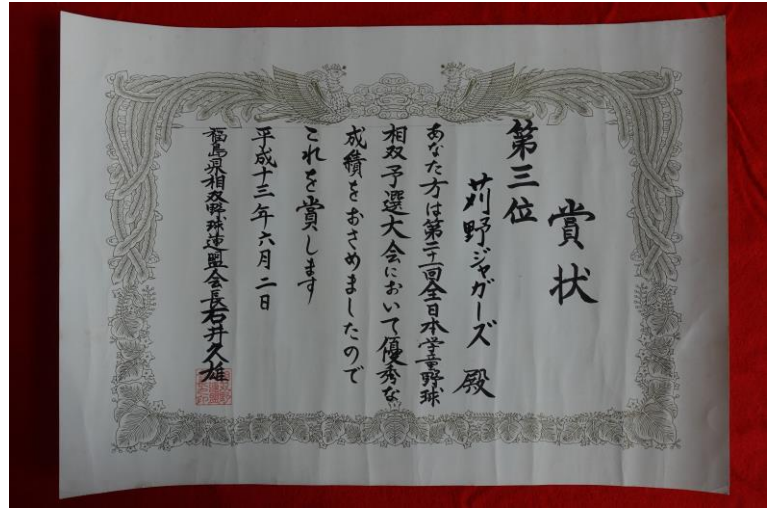 賞状
第三位
苅野ジャガーズ 殿
あなた方は第二十一回全日本学童野球
相双予選大会において優秀な
成績をおさめましたので
これを賞します
平成十三年六月二日
福島県相双野球連盟会長石井久雄